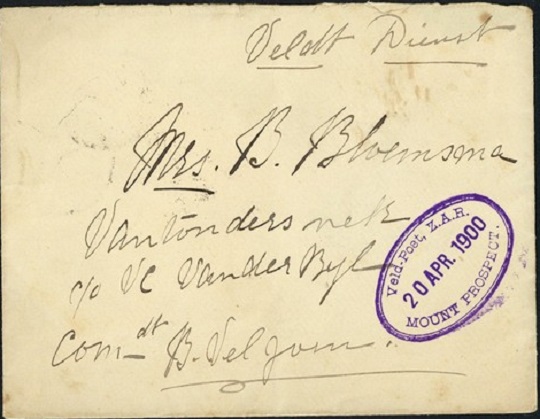 Veldt Dienst
Mrs. B. Bloemsma
Vantondersnek
c/o VC VanderByl
Comdt B. Veljoen.
Veld-Post, Z.A.R.
20 APR. 1900
MOUNT PROSPECT.